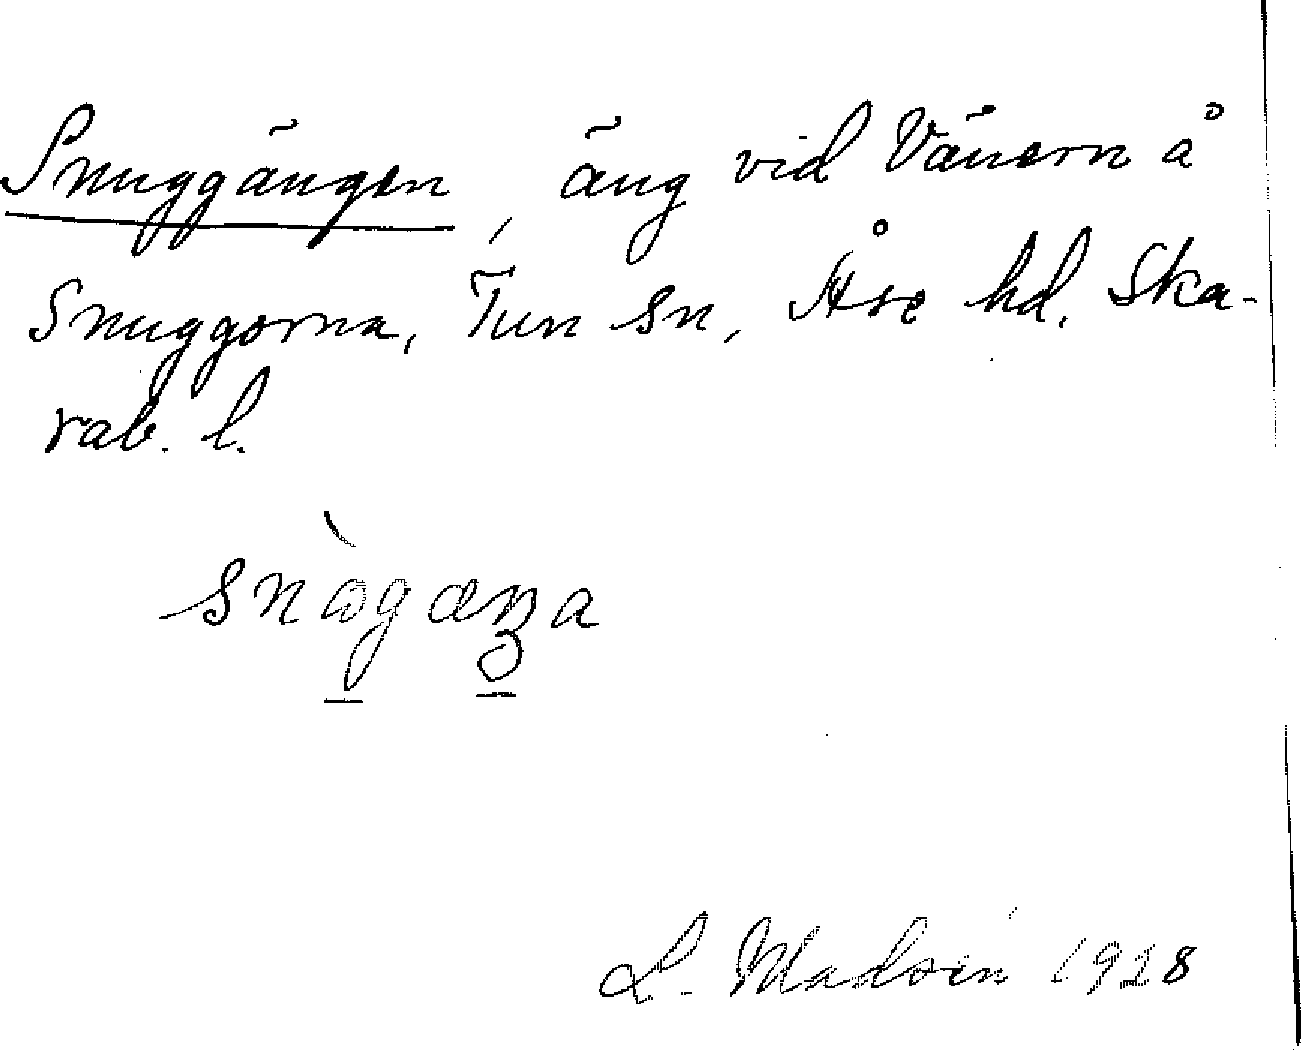 Snuggängen, äng vid Vänern å
Snuggorna, Tun sn, Åse hd. Ska-
rab. l.
L. Madsén 1928